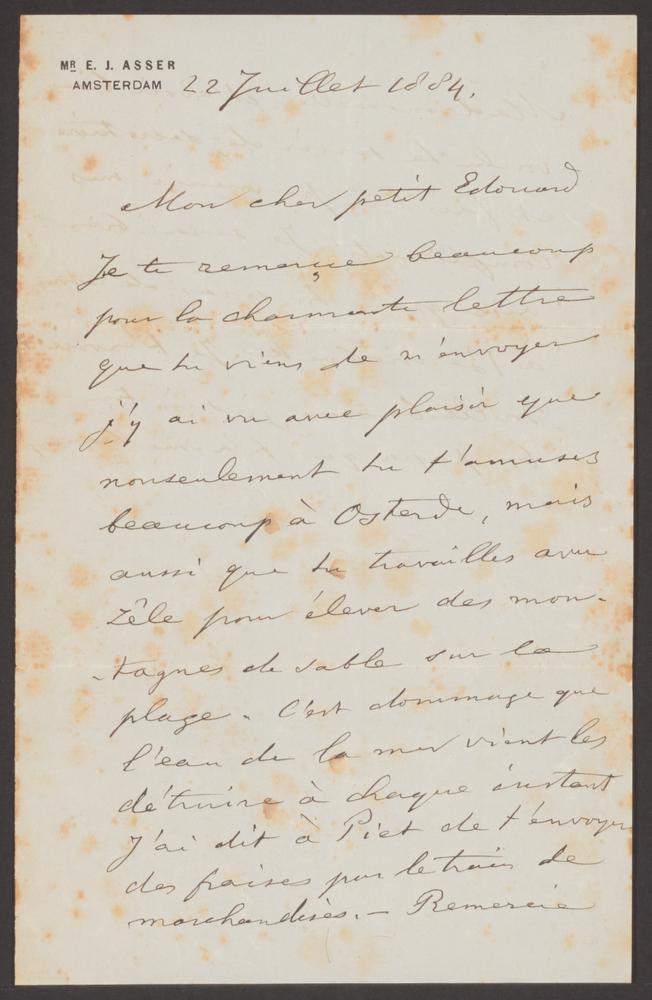 Mr E. J. ASSER
AMSTERDAM
22 Juillet 1884.
Mon cher petit Edouard
Je te remercie beaucoup
pour la charmante lettre
que tu viens de m'envoyer
j'y ai vu avec plaisir que
nonseulement tu t'amuses
beaucoup à Ostende, mais
aussi que tu travailles avec
zêle pour élever des mon-
tagnes de sable sur la
plage. C'est dommage que
l'eau de la mer vient les
détruire à chaque instant
J'ai dit à Piet de t'envoyer
des fraises par le train de
marchandises. — Remercie